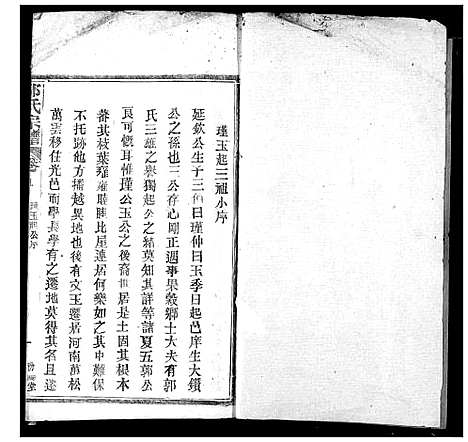 瑾玉起三祖小序
延欽公生子三伯曰瑾仲曰玉季曰起邑庠生大鑽
公之孫也三公存心剛正遇事果毅鄉士大夫有郭
氏三雄之譽獨起公之緒莫知其詳等諸夏五郭公
良可慨耳惟瑾公玉公之後裔世居是土固其根本
蕃其枝葉雍雍睦睦比屋連居何樂如之其中難保
不托跡他方播越異地也後有文玉遷居河南萬松
萬雲移住光邑而學長學有之遷地莫得其名且遠
氏宗譜 卷
玉起公序
一
堂